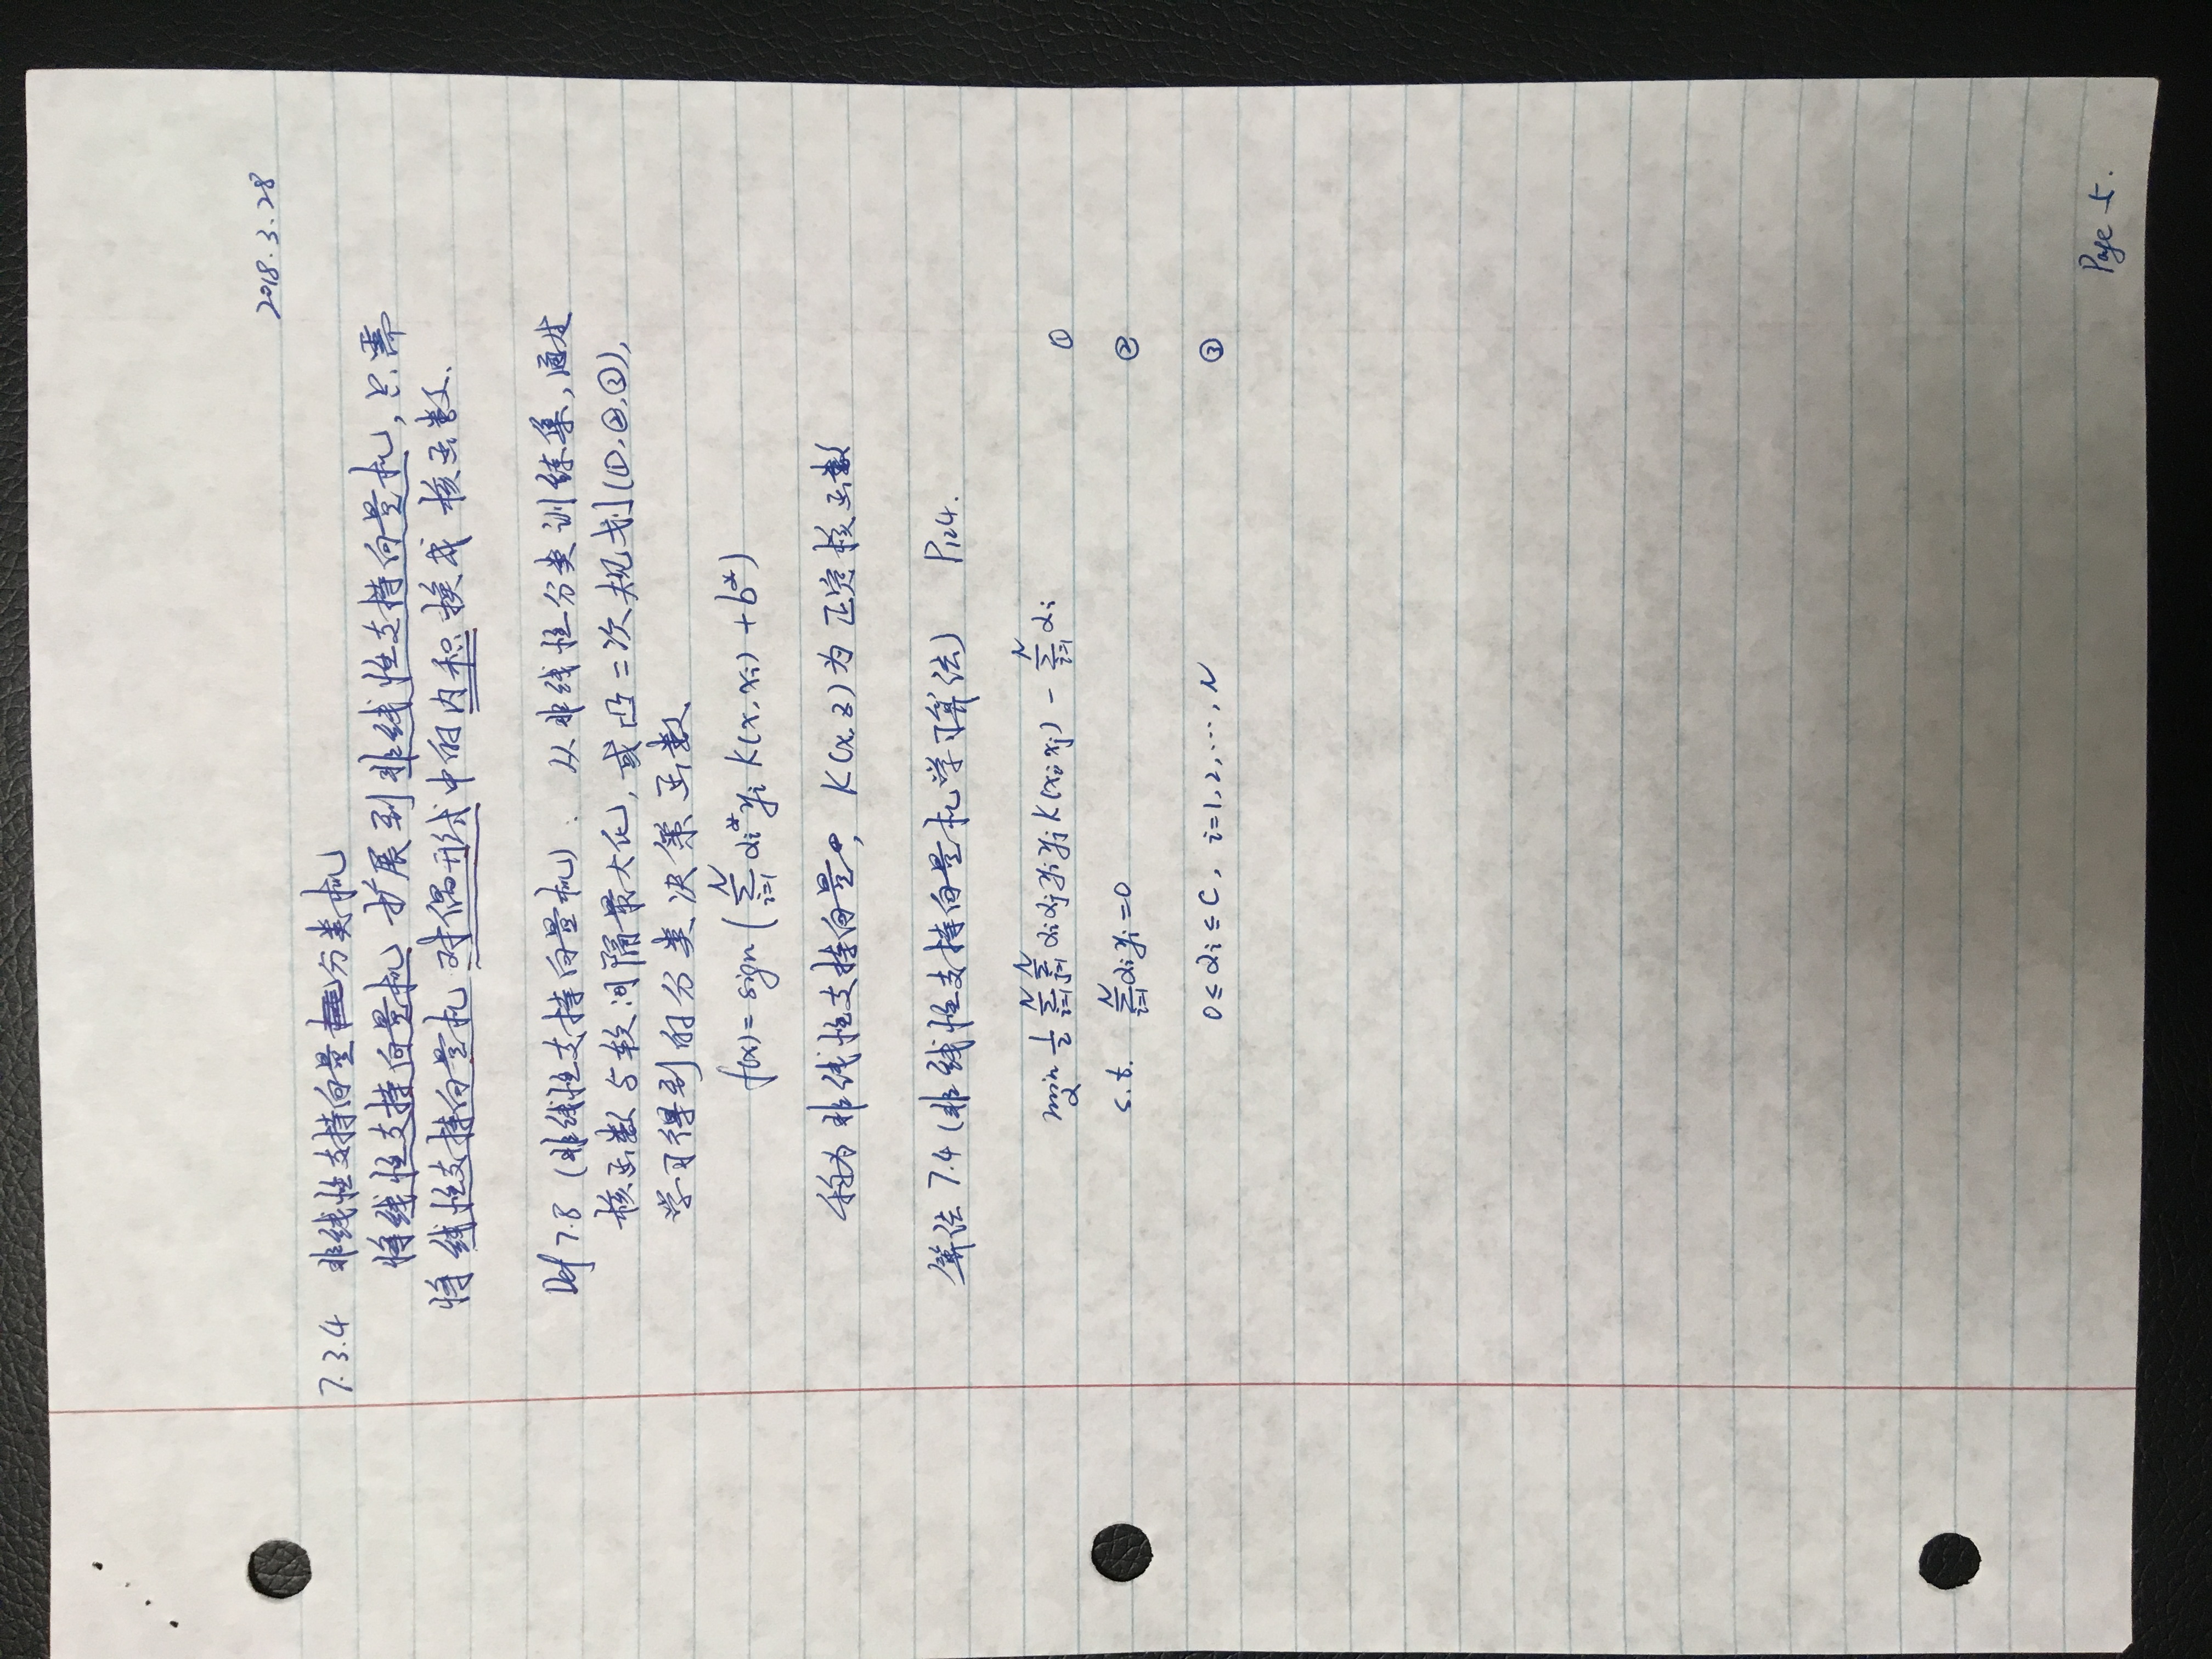 2018.3.28
7.3.4 非线性支持向量分类机
将线性支持向量机扩展到非线性支持向量机,只需
将线性支持向量机对偶形式中的内积换成核函数.
Def 7.8 (非线性支持向量机): 从非线性分类训练集,通过
核函数与软间隔最大化,或凸二次规划(①.②.③),
学习得到的分类决策函数
f(x) = sign ( \sum_{i=1}^{N} α_i^* y_i K(x, x_i) + b^* )
称为非线性支持向量。 K(x,z)为正定核函数
算法 7.4 (非线性支持向量机学习算法) P124.
min_α \frac{1}{2} \sum_{i=1}^{N} \sum_{j=1}^{N} α_i α_j y_i y_j K(x_i, x_j) - \sum_{i=1}^{N} α_i ①
s.t. \sum_{i=1}^{N} α_i y_i = 0 ②
0 ≤ α_i ≤ C, i=1,2,...,N ③
Page 5.